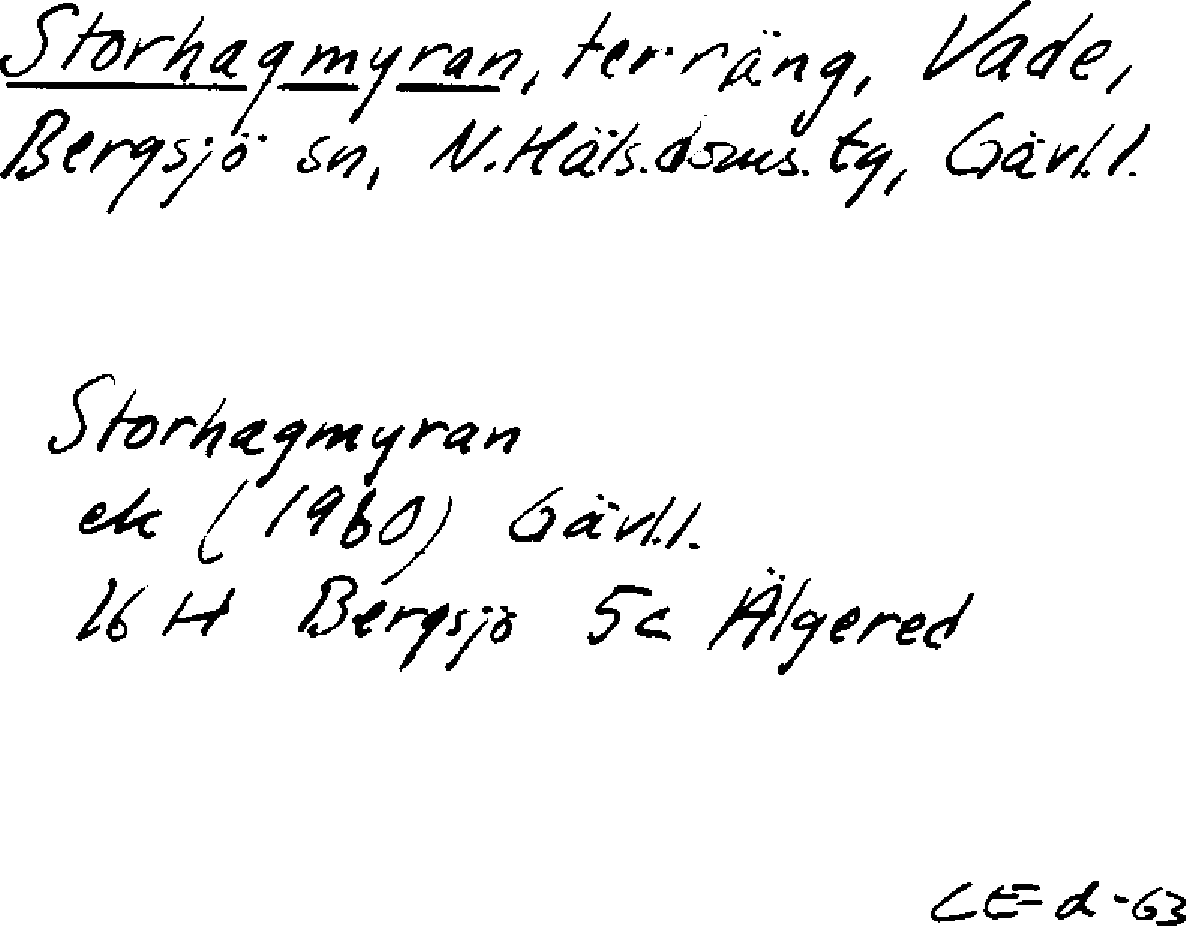 Storhagmyran, terräng, Vade,
Bergsjö sn, N.Häls.doms.tg, Gävl.l.
Storhagmyran
ek (1960) Gävl.l.
16 H Bergsjö 5c Älgered
CE d -63